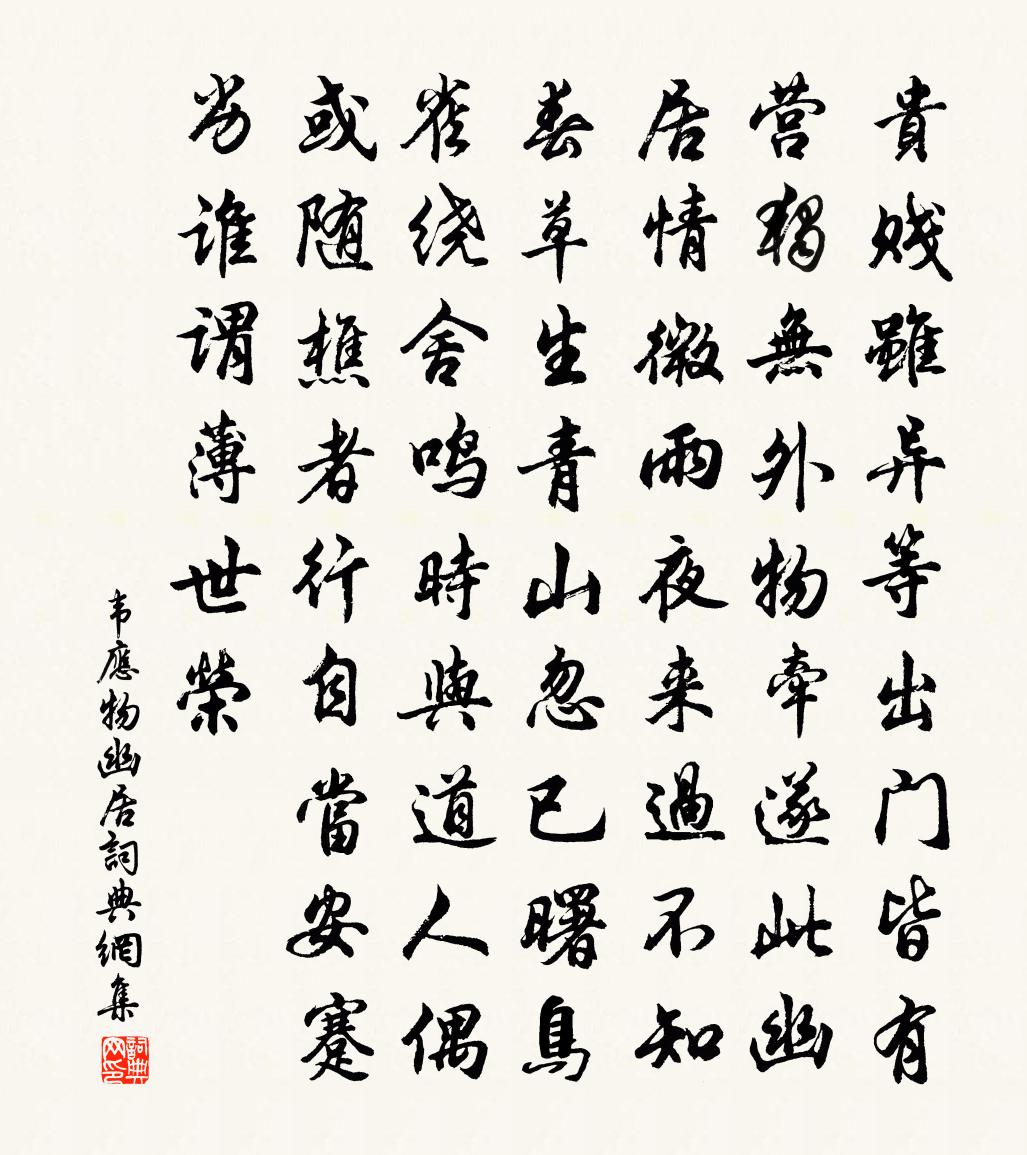 貴賤雖异等出门皆有
营獨無外物牽遂此幽
居情微雨夜来過不知
春草生青山忽已曙鳥
雀绕舍鸣時與道人偶
或随樵者行自當安蹇
劣谁谓薄世榮
韦應物幽居詞典網集
詞典网印